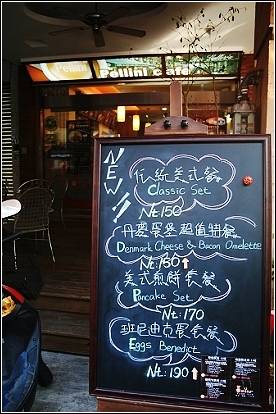 Pellini Café
NEW!!
傳統美式餐
Classic Set
Nt. 150
丹麥蛋堡超值特餐
Denmark Cheese & Bacon Omelette
Nt. 160↑
美式煎餅套餐
Pancake Set
Nt. 170
班尼迪克蛋套餐
Eggs Benedict
Nt. 190↑